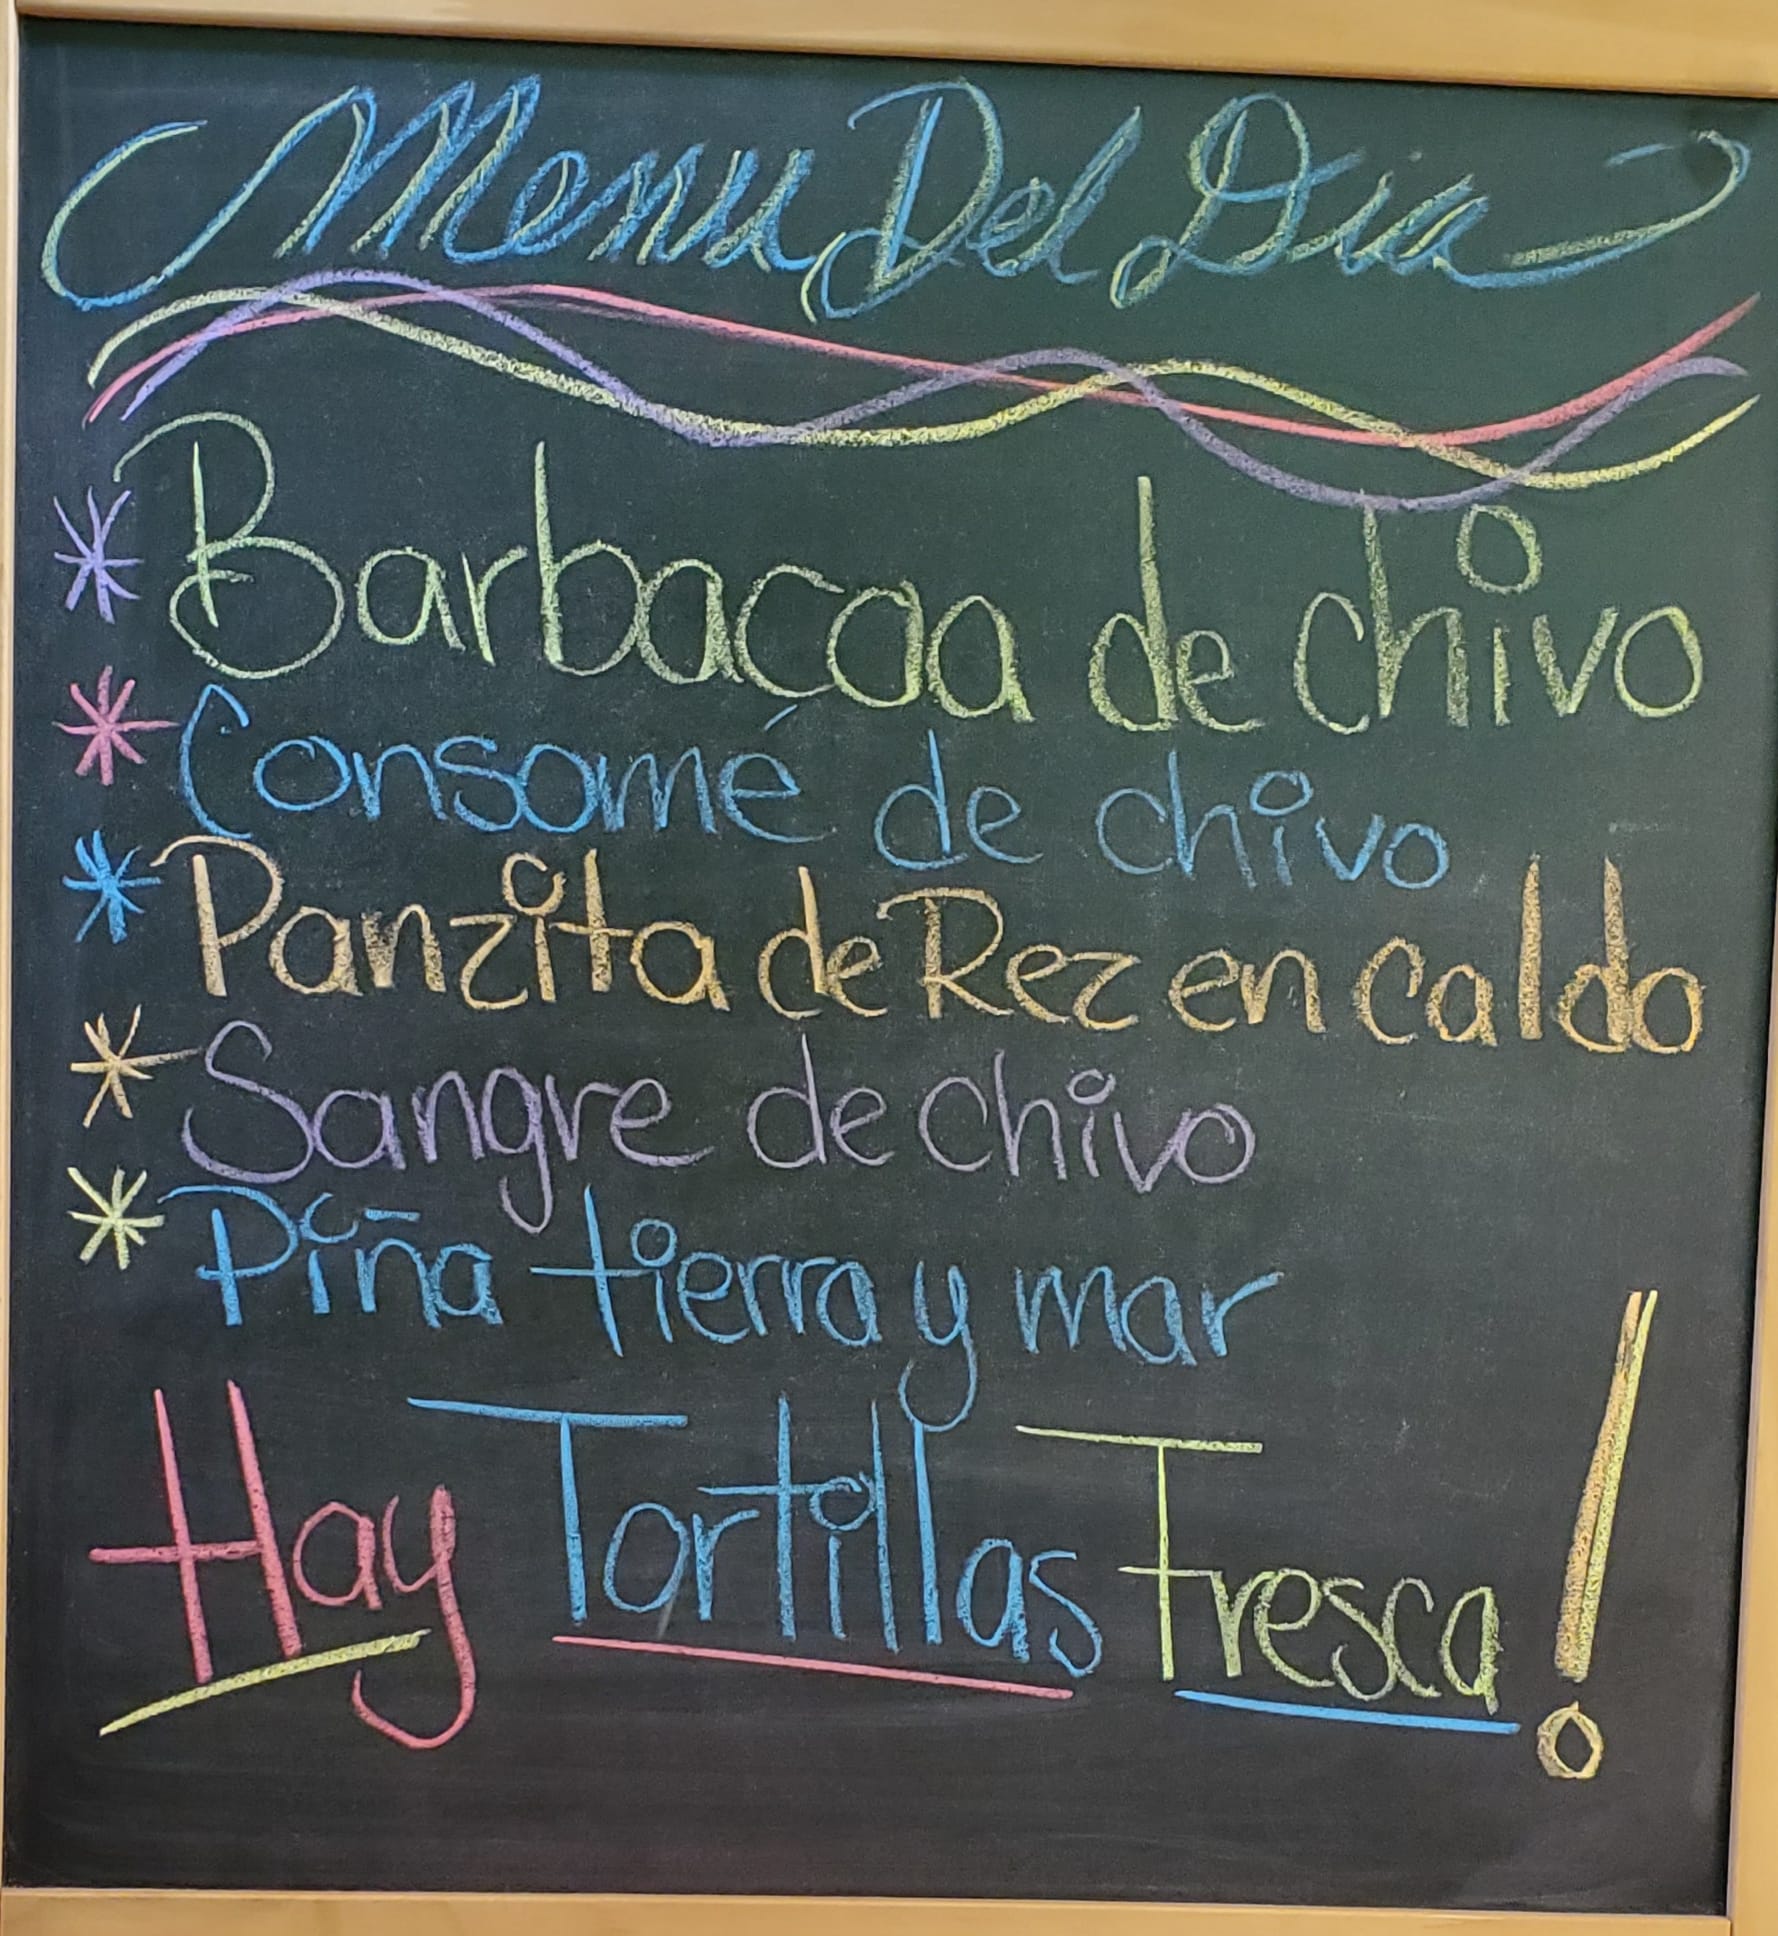 Menu Del Dia
* Barbacoa de chivo
* Consomé de chivo
* Panzita de Rez en caldo
* Sangre de chivo
* Piña tierra y mar
Hay Tortillas Fresca!